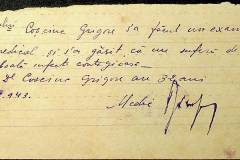 Coscine Grigore s'a făcut un exam
medical, și s'a găsit că nu suferă d
boală infect contagioase
Dl Coscine Grigore are 32 ani
.943.
Medic